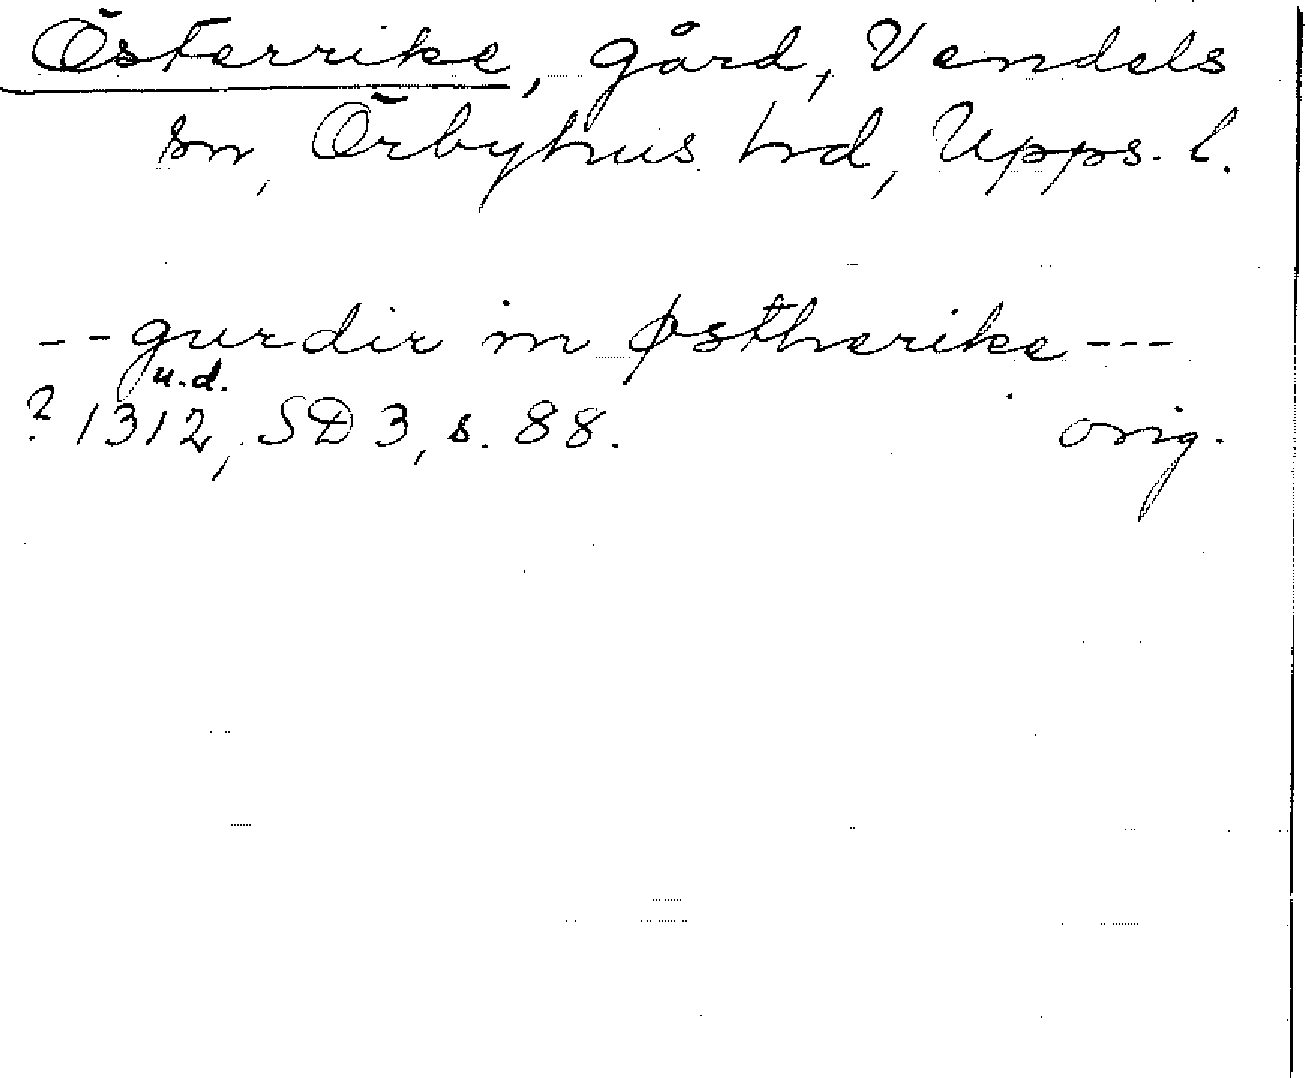 Österrike, gård, Vendels
sn, Örbyhus hd, Upps. l.
--gurdir in østherike---
u.d.
? 1312, SD 3, s. 88. orig.